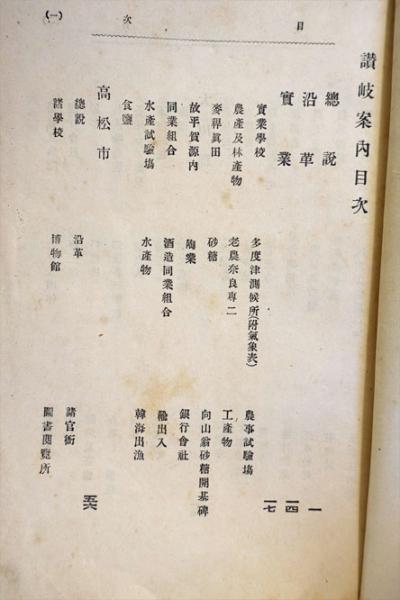 讃岐案內目次
目次
總說 一
沿革 一四
實業 一七
實業學校 多度津測候所(附氣象表) 農事試驗場
農產及林產物 老農奈良專二 工產物
麥稈眞田 砂糖 向山翁砂糖開基碑
故平賀源內 陶業 銀行會社
同業組合 酒造同業組合 輸出入
水產試驗場 水產物 韓海出漁
食鹽
高松市 五六
總說 沿革 諸官衙
諸學校 博物館 圖書閱覽所
(一)